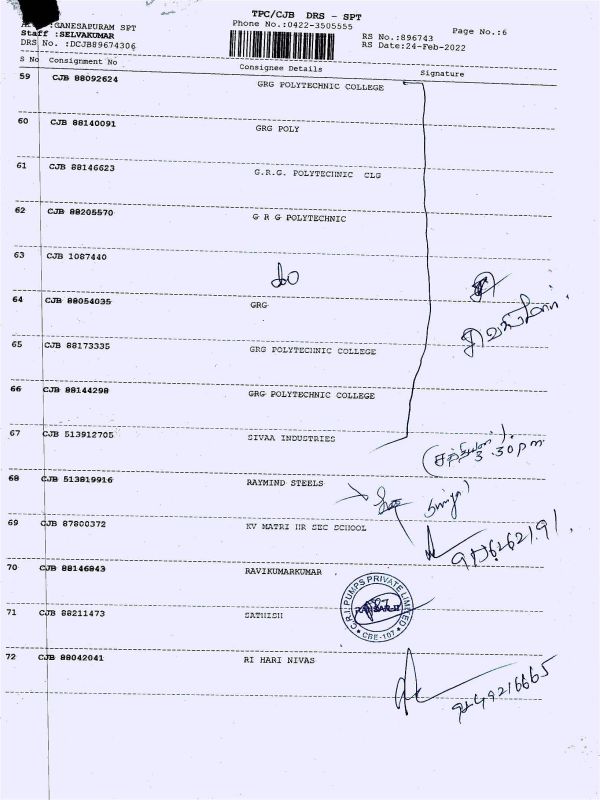 TPC/CJB DRS - SPT
:GANESAPURAM SPT
Phone No.:0422-3505555
Page No.:6
Staff :SELVAKUMAR
RS No.:896743
DRS No. :DCJB89674306
RS Date:24-Feb-2022
S No Consignment No Consignee Details Signature
59 CJB 88092624 GRG POLYTECHNIC COLLEGE
60 CJB 88140091 GRG POLY
61 CJB 88146623 G.R.G. POLYTECHNIC CLG
62 CJB 88205570 G R G POLYTECHNIC
63 CJB 1087440
do
64 CJB 88054035 GRG
65 CJB 88173335 GRG POLYTECHNIC COLLEGE
66 CJB 88144298 GRG POLYTECHNIC COLLEGE
67 CJB 513912705 SIVAA INDUSTRIES
3.30pm
68 CJB 513819916 RAYMIND STEELS
69 CJB 87800372 KV MATRI HR SEC SCHOOL
70 CJB 88146843 RAVIKUMARKUMAR
C.R.I. PUMPS PRIVATE LIMITED
CBE-107
71 CJB 88211473 SATHISH
72 CJB 88042041 RI HARI NIVAS